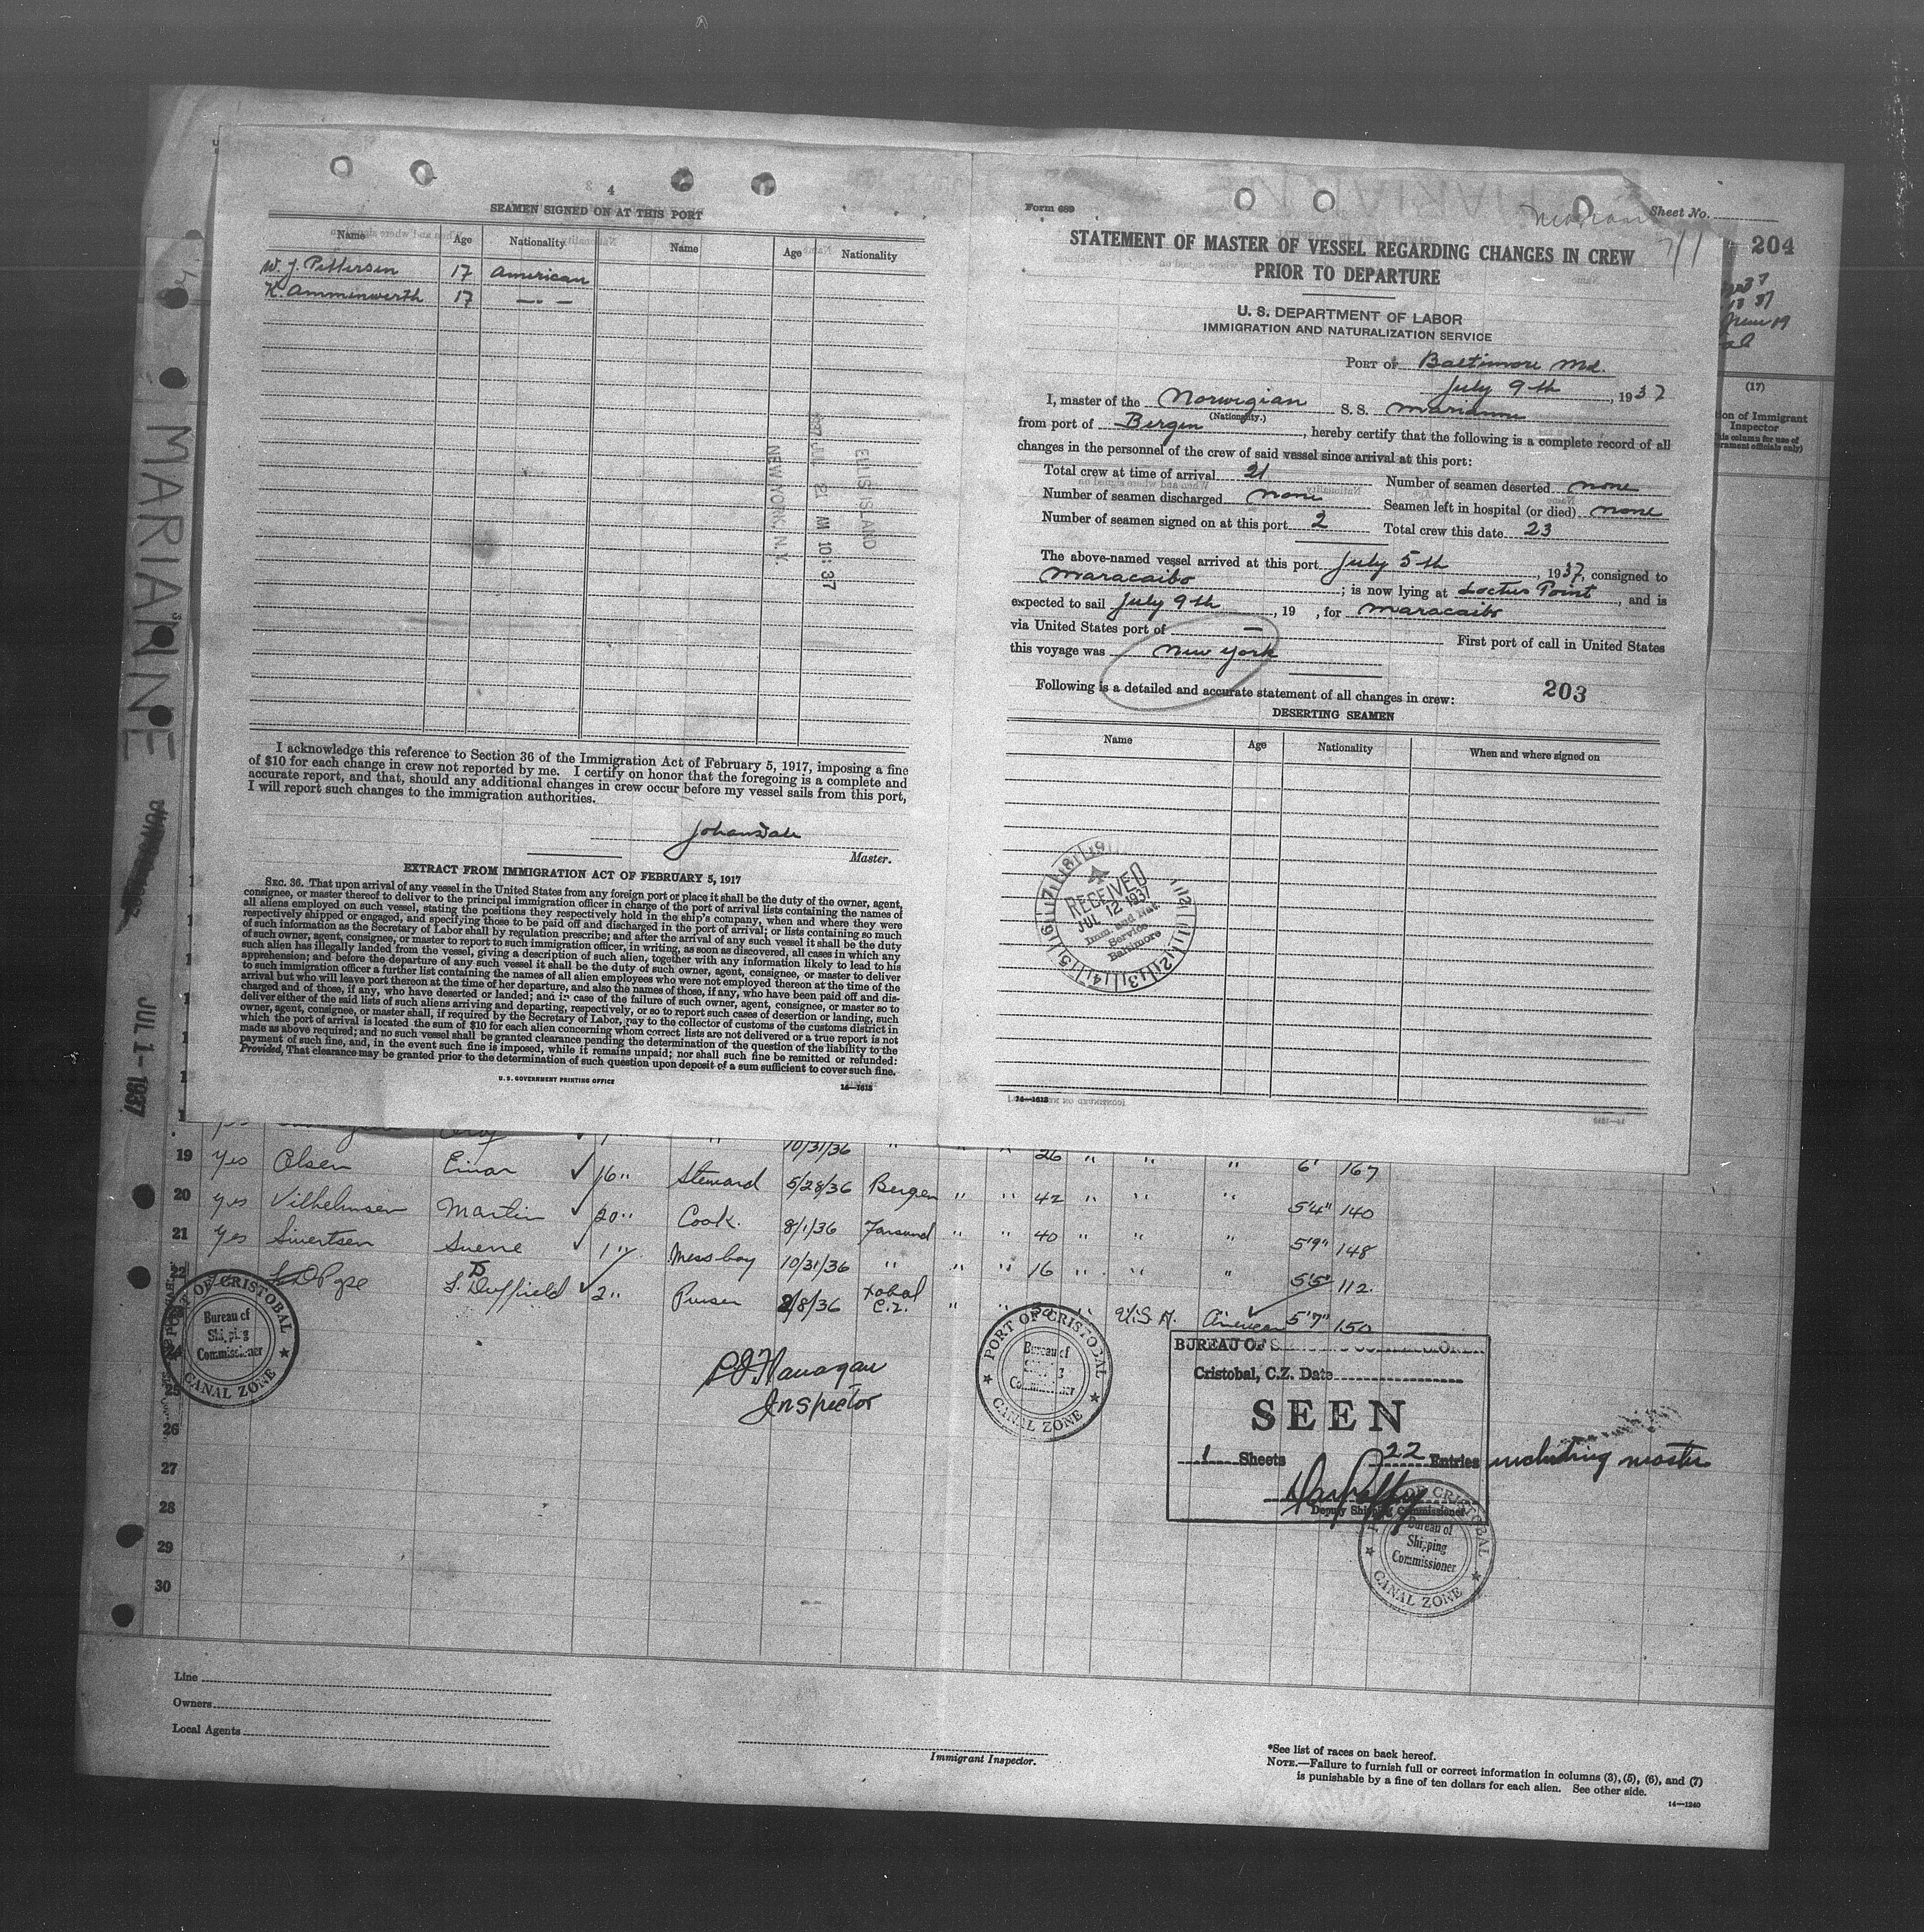 4
SEAMEN SIGNED ON AT THIS PORT
Name Age Nationality Name Age Nationality
W. J. Pettersen 17 American
K. Ammenwerth 17 —"—
ELLIS ISLAND
1937 JUL 21 AM 10:37
NEW YORK, N.Y.
I acknowledge this reference to Section 36 of the Immigration Act of February 5, 1917, imposing a fine
of $10 for each change in crew not reported by me. I certify on honor that the foregoing is a complete and
accurate report, and that, should any additional changes in crew occur before my vessel sails from this port,
I will report such changes to the immigration authorities.
Johan Dale
Master.
EXTRACT FROM IMMIGRATION ACT OF FEBRUARY 5, 1917
SEC. 36. That upon arrival of any vessel in the United States from any foreign port or place it shall be the duty of the owner, agent,
consignee, or master thereof to deliver to the principal immigration officer in charge of the port of arrival lists containing the names of
all aliens employed on such vessel, stating the positions they respectively hold in the ship's company, when and where they were
respectively shipped or engaged, and specifying those to be paid off and discharged in the port of arrival; or lists containing so much
of such information as the Secretary of Labor shall by regulation prescribe; and after the arrival of any such vessel it shall be the duty
of such owner, agent, consignee, or master to report to such immigration officer, in writing, as soon as discovered, all cases in which any
such alien has illegally landed from the vessel, giving a description of such alien, together with any information likely to lead to his
apprehension; and before the departure of any such vessel it shall be the duty of such owner, agent, consignee, or master to deliver
to such immigration officer a further list containing the names of all alien employees who were not employed thereon at the time of the
arrival but who will leave port thereon at the time of her departure, and also the names of those, if any, who have been paid off and dis-
charged and of those, if any, who have deserted or landed; and in case of the failure of such owner, agent, consignee, or master so to
deliver either of the said lists of such aliens arriving and departing, respectively, or so to report such cases of desertion or landing, such
owner, agent, consignee, or master shall, if required by the Secretary of Labor, pay to the collector of customs of the customs district in
which the port of arrival is located the sum of $10 for each alien concerning whom correct lists are not delivered or a true report is not
made as above required; and no such vessel shall be granted clearance pending the determination of the question of the liability to the
payment of such fine, and, in the event such fine is imposed, while it remains unpaid; nor shall such fine be remitted or refunded:
Provided, That clearance may be granted prior to the determination of such question upon deposit of a sum sufficient to cover such fine.
U. S. GOVERNMENT PRINTING OFFICE 14—1618
Form 689
Sheet No.
7/1
204
STATEMENT OF MASTER OF VESSEL REGARDING CHANGES IN CREW
PRIOR TO DEPARTURE
U. S. DEPARTMENT OF LABOR
IMMIGRATION AND NATURALIZATION SERVICE
PORT OF Baltimore Md.
July 9th, 1937
I, master of the Norwegian S. S. Marianne
(Nationality.)
from port of Bergen, hereby certify that the following is a complete record of all
changes in the personnel of the crew of said vessel since arrival at this port:
Total crew at time of arrival 21 Number of seamen deserted none
Number of seamen discharged none Seamen left in hospital (or died) none
Number of seamen signed on at this port 2 Total crew this date 23
The above-named vessel arrived at this port July 5th, 1937, consigned to
Maracaibo; is now lying at Loctus Point, and is
expected to sail July 9th, 19 , for Maracaibo
via United States port of — First port of call in United States
this voyage was New York
Following is a detailed and accurate statement of all changes in crew: 203
DESERTING SEAMEN
Name Age Nationality When and where signed on
RECEIVED
JUL 12 1937
Imm. and Nat.
Service
Baltimore
14—1618
(17)
tion of Immigrant
Inspector
MARIANNE
JUL 1 - 1937
10/31/36
19 Yes Olsen Einar 16" Steward 5/28/36 Bergen " " 26 " " " 6' 167
20 yes Vilhelmsen Martin 20" Cook. 8/1/36 Farsund " " 42 " " " 5'4" 140
21 Yes Sivertsen Sverre 1" Messboy 10/31/36 " " " 40 " " " 5'9" 148
22 Pope L. Duffield 2" Purser 2/8/36 Xobal C.Z. " " 16 " " " 5'5" 112.
U.S.A. American 5'7" 150
24
25
26
27
28
29
30
PORT OF CRISTOBAL
Bureau of
Shipping
Commissioner
CANAL ZONE
P J Flanagan
Inspector
PORT OF CRISTOBAL
Bureau of
Commissioner
CANAL ZONE
BUREAU OF SHIPPING COMMISSIONER
Cristobal, C.Z. Date
SEEN
1 Sheets 22 Entries including master
Deputy Shipping Commissioner
PORT OF CRISTOBAL
Bureau of
Shipping
Commissioner
CANAL ZONE
Line
Owners
Local Agents
Immigrant Inspector.
*See list of races on back hereof.
NOTE.—Failure to furnish full or correct information in columns (3), (5), (6), and (7)
is punishable by a fine of ten dollars for each alien. See other side.
14—1240